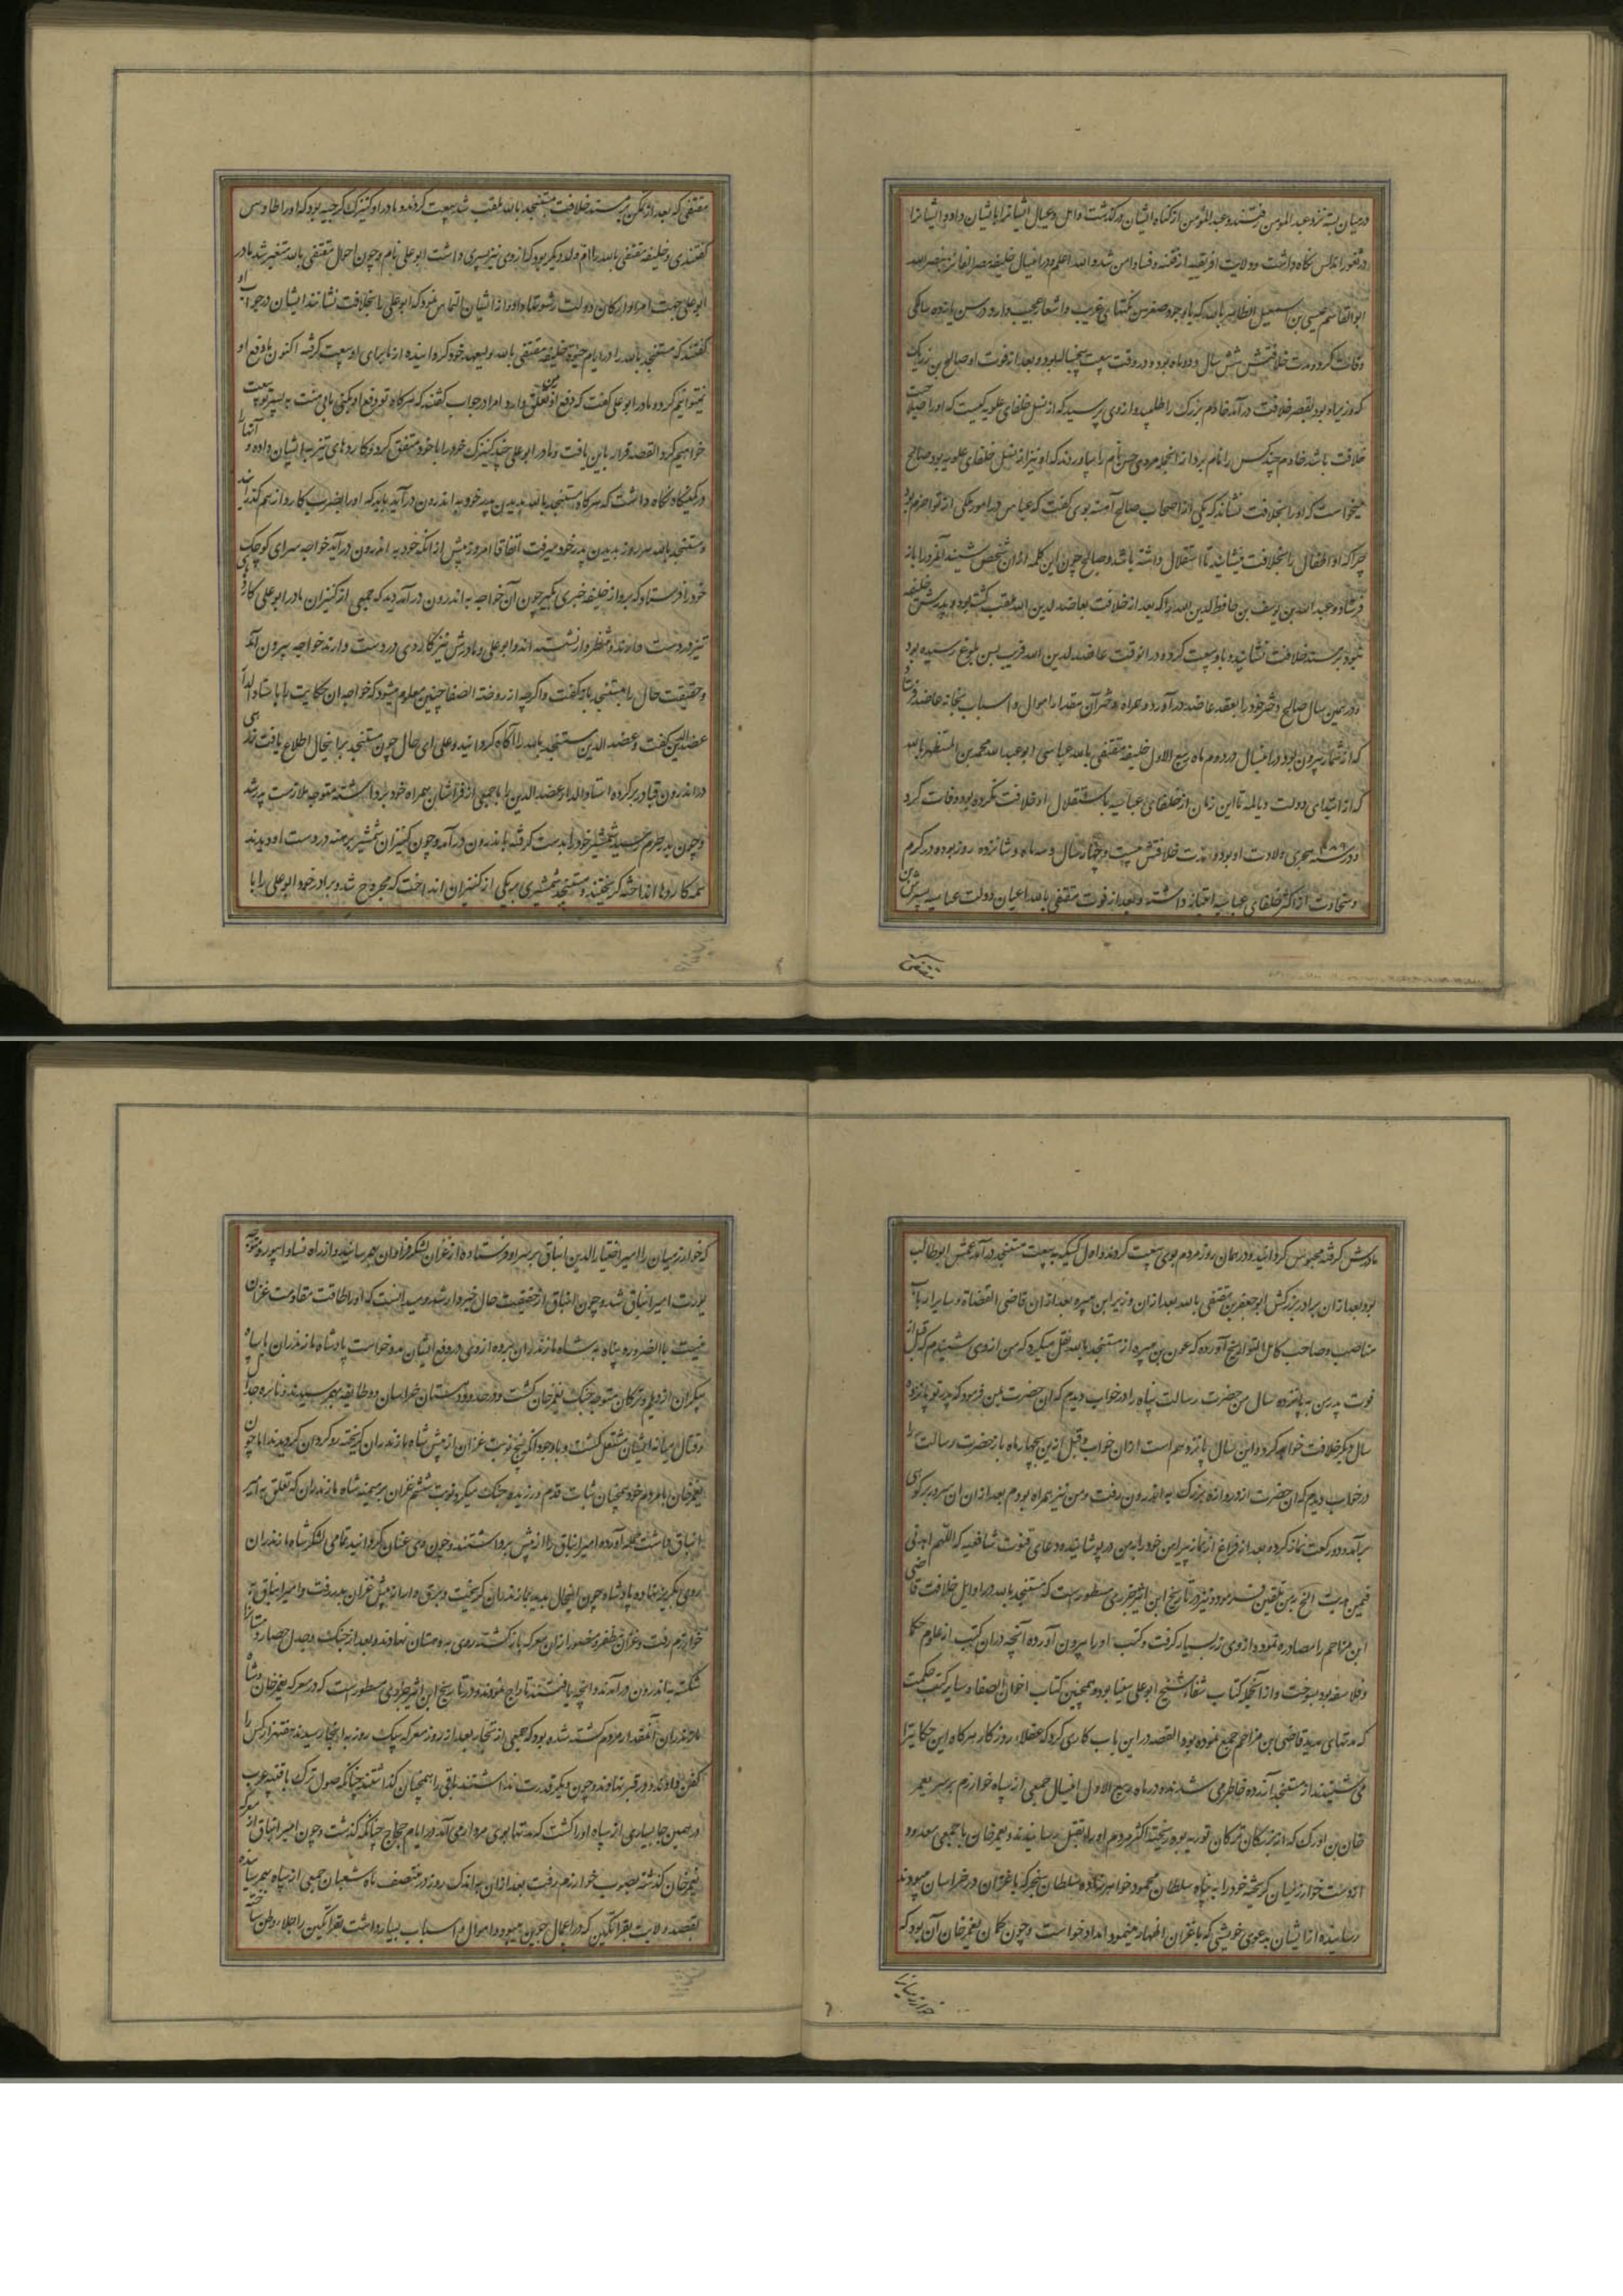 در میان بسته نزد عبد المؤمن رفتند و عبد المؤمن از گناه ایشان درگذشت و اهل و عیال ایشانرا بایشان داد و ایشانرا
در ثغور اندلس نگاه داشت و ولایت افریقیه از فتنه و فساد امن شد و الله اعلم و در این سال خلیفه مصر الفائز بنصر الله
ابو القاسم عیسی بن اسمعیل الظافر بالله که با وجود صغر سن نکتهای غریب و اشعار عجیب دارد در سن یازده سالگی
وفات کرد و مدت خلافتش شش سال و دو ماه بود و در وقت بیعت پنج ساله بود و بعد از فوت او صالح بن رزیک
که وزیر او بود بقصر خلافت درآمد خادم بزرگ را طلبید و از وی پرسید که از نسل خلفای علویه کیست که او را صلاحیت
خلافت باشد خادم چند کس را نام برد از انجمله مردی حسن نام را بیاوردند که او نیز از نسل خلفای علویه بود صالح
میخواست که او را بخلافت نشاند که یکی از اصحاب صالح آهسته بوی گفت که عباس در امور ملکی از تو احزم بود
چرا که او اطفال را بخلافت مینشانید تا استقلال داشته باشد و صالح چون این کلمه از ان شخص شنید آنمرد را باز
فرستاد و عبد الله بن یوسف بن حافظ لدین الله را که بعد از خلافت بعاضد لدین الله ملقب گشته بود و پدرش خلیفه
نبود بر مسند خلافت نشانید و با او بیعت کرد و در انوقت عاضد لدین الله قریب بسن بلوغ رسیده بود
و در همین سال صالح دختر خود را بعقد عاضد درآورد و همراه دختر آن مقدار اموال و اسباب بخانه عاضد فرستاد
که از شمار بیرون بود در این سال در دوم ماه ربیع الاول خلیفه مقتفی بالله عباسی ابو عبد الله محمد بن المستظهر بالله
که از ابتدای دولت دیالمه تا این زمان از خلفای عباسیه باستقلال او خلافت نکرده بود وفات کرد
و در سنه هجری ولادت او بود و مدت خلافتش بیست و چهار سال و سه ماه و شانزده روز بوده در کرم
و سخاوت از اکثر خلفای عباسیه امتیاز داشت و بعد از فوت مقتفی بالله اعیان دولت عباسیه پسرش بن
مقتفی
مقتفی که بعد از تمکن بر مسند خلافت بمستنجد بالله ملقب شد بیعت کردند و مادر او کنیزک کرجیه بود که او را طاوس
گفتندی و خلیفه مقتفی بالله را ام ولد دیگر بود که از وی نیز پسری داشت ابو علی نام و چون احوال مقتفی بالله متغیر شد مادر
ابو علی جهت امرا و ارکان دولت رشوتها داد و از ایشان التماس نمود که ابو علی را بخلافت نشانند ایشان در جواب او
گفتند که مستنجد بالله را در ایام حیوة خلیفه مقتفی بالله ولیعهد خود گردانیده از ما برای او بیعت گرفته اکنون ما دفع او
نمیتوانیم کرد و مادر ابو علی گفت که دفع او تعلق بمن دارد امرا در جواب گفتند که هرگاه تو دفع او بکنی ما بی منت به پسر تو بیعت
خواهیم کرد القصه قرار باین یافت و مادر ابو علی چند کنیزک خود را با خود متفق کرد و کاردهای تیز بایشان داده و آنها را
در کمینگاه نگاه داشت که هرگاه مستنجد بالله بدیدن پدر خود به اندرون درآید باید که او را بضرب کارد از هم گذرانند
و مستنجد بالله هر روز بدیدن پدر خود میرفت اتفاقا امروز پیش از انکه خود به اندرون درآید خواجه سرای کوچک
خود را فرستاد که برو از خلیفه خبری بگیر چون آن خواجه به اندرون درآمد دید که جمعی از کنیزان مادر ابو علی کاردهای
تیز در دست دارند و منتظر وار نشسته اند و ابو علی و مادرش نیز کاردی در دست دارند خواجه بیرون آمد
و حقیقت حال را بمستنجد باز گفت و اگرچه از روضة الصفا چنین معلوم میشود که خواجه ان حکایت را با استاد الدار
عضد الدین گفت و عضد الدین مستنجد بالله را آگاه گردانید و علی ای حال چون مستنجد بر اینحال اطلاع یافت
در اندرون قبا در بر کرده استاد الدار عضد الدین را با جمعی از فراشان همراه خود برداشته متوجه ملازمت پدر شد
و چون بدر حرم رسید شمشیر خود را بدست گرفته به اندرون درآمد و چون کنیزان شمشیر برهنه در دست او دیدند
همه کاردها انداخته گریختند و مستنجد شمشیری بر یکی از کنیزان انداخت که مجروح شد و برادر خود ابو علی را با
مادرش گرفته محبوس گردانید و در همان روز مردم بوی بیعت کردند و اول کسیکه به بیعت مستنجد درآمد عمش ابو طالب
بود بعد از ان برادر بزرگش ابو جعفر بن مقتفی بالله بعد از ان وزیر ابن هبیره بعد از ان قاضی القضاة و سایر ارباب
مناصب و صاحب کامل التواریخ آورده که عون بن هبیره از مستنجد بالله نقل میکرد که من از وی شنیدم که قبل از
فوت پدر من به پانزده سال من حضرت رسالت پناه را در خواب دیدم که ان حضرت بمن فرمود که پدر تو پانزده
سال دیگر خلافت خواهد کرد و این سال پانزدهم است از ان خواب و قبل ازین بچهار ماه باز حضرت رسالت را
در خواب دیدم که ان حضرت از دروازه بزرگ به اندرون رفت و من نیز همراه بودم بعد از ان ان سرور بر کوهی
برآمد و دو رکعت نماز کرد و بعد از فراغ از نماز پیراهن خود را به من در پوشانیده دعای قنوت شافعیه که اللهم اهدنی
فیمن هدیت الخ بمن تلقین فرمود و نیز در تاریخ ابن اثیر جزری مسطور است که مستنجد بالله در اوایل خلافت قاضی
ابن مزاحم را مصادره نمود و از وی زر بسیار گرفت و کتب او را بیرون آورده آنچه در ان کتب از علوم حکما
و فلاسفه بود بسوخت و از آنجمله کتاب شفاء شیخ ابو علی سینا بود و همچنین کتاب اخوان الصفا و سایر کتب حکمت
که مدتهای مدید قاضی ابن مزاحم جمع نموده بود القصه در این باب کاری کرد که عقلاء روزگار هرگاه این حکایترا
می شنیدند از مستنجد آزرده خاطر می شدند و در ماه ربیع الاول این سال جمعی از سپاه خوارزم بر سر یغمر
خان بن اورک که از بزرگان ترکان توریه بوده ریخته اکثر مردم او را بقتل رسانیدند و یغمر خان با جمعی معدود
از دست خوارزمیان گریخته خود را به پناه سلطان محمود خواهرزاده سلطان سنجر که با غزان در خراسان میبودند
رسانیده از ایشان بدعوی خویشی که با غزان اظهار مینمود امداد خواست و چون گمان یغمر خان آن بود که
خوارزمیان
که خوارزمیان را امیر اختیار الدین ایتاق بر سر او فرستاده از غزان لشکر فراوان بهم رسانیده از راه نسا و ابیورد متوجه
یورت امیر ایتاق شد و چون ایتاق از حقیقت حال خبردار شد و میدانست که او را طاقت مقاومت غزان
نیست بالضروره پناه به شاه مازندران برده از وی در دفع ایشان مدد خواست پادشاه مازندران با سپاه
بیکران از دیلم و ترکان متوجه جنگ یغمر خان گشت و در حدود دهستان خراسان دو طایفه بهم رسیدند و نایره جدال
و قتال میانه ایشان مشتعل گشت و با وجود انکه پنج نوبت غزان از پیش شاه مازندران گریخته رو گردان گردیدند اما چون
یغمر خان با مردم خود همچنان ثبات قدم ورزیده جنگ میکرد نوبت ششم غزان بر میمنه شاه مازندران که تعلق به امیر
ایتاق داشت حمله آورده امیر ایتاق را از پیش برداشتند و چون وی عنان گردانید تمامی لشکر شاه مازندران
روی بگریز نهاده پادشاه چون اینحال بدید بمازندران گریخت و برق وار از پیش غزان بدر رفت و امیر ایتاق به
خوارزم رفت و غزان مظفر و منصور از ان معرکه بازگشته روی به دهستان نهادند و بعد از جنگ و جدل حصار دهستانرا
شکسته به اندرون درآمدند و آنچه یافتند تاراج نمودند و در تاریخ ابن اثیر جزری مسطور است که در معرکه یغمر خان و شاه
مازندران آنمقدار مردم کشته شده بود که جمعی از تجار بعد از روز معرکه بیک روز به انجا رسیدند هفتهزار کس را
کفن دادند و در قبر نهادند و چون دیگر قدرت نداشتند باقی را همچنان گذاشتند چنانکه صول ترک با قتیبه عرب
در همین جا بسیاری از سپاه او را کشت که مدتها بوی مردار می آمد در ایام حجاج چنانکه گذشت و چون امیر ایتاق از معرکه
یغمر خان گذشته بصوب خوارزم رفت بعد از ان به اندک روز در منتصف ماه شعبان جمعی از سپاه بهم رسانیده
بقصد ولایت بغراتکین که در اعمال جوین میبود و اموال و اسباب بسیار داشت بغراتکین را جلاء وطن ساخته